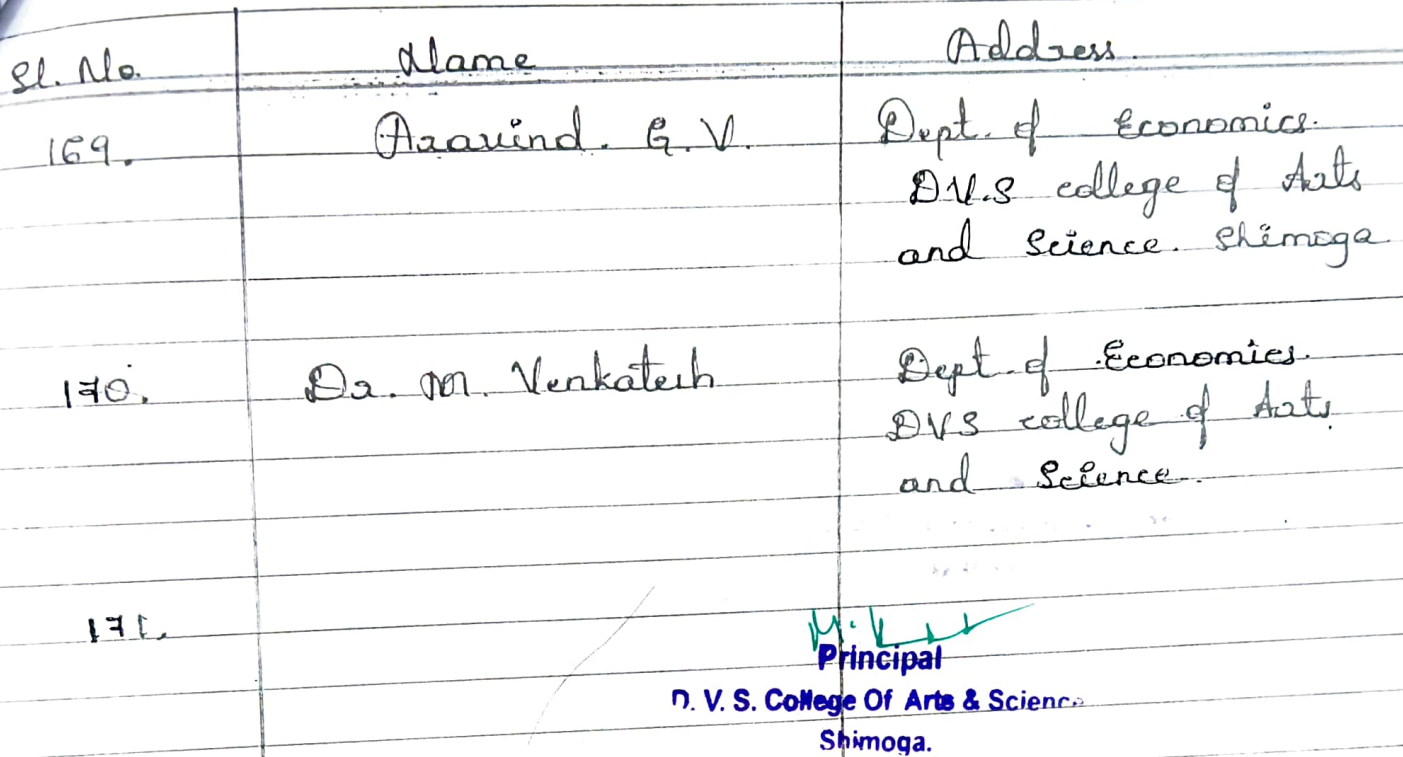 Sl. No. Name Address.
169. Aravind. G. V. Dept. of Economics.
D.V.S college of Arts
and Science. Shimoga
170. Dr. M. Venkatesh Dept. of Economics.
DVS college of Arts
and Science.
171.
Principal
D. V. S. College Of Arts & Science
Shimoga.